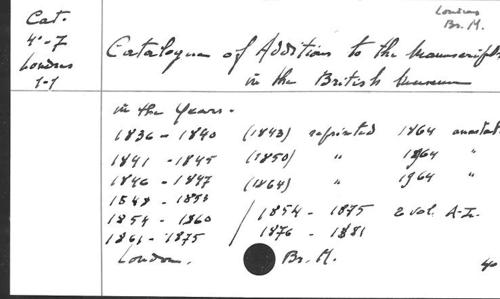 Londres
Br. M.
Cat.
4°-7
Londres
1-1
Catalogue of Additions to the Manuscripts
in the British Museum
in the Years.
1836 - 1840 (1843) reprinted 1964 anastat.
1841 - 1845 (1850) " 1964 "
1846 - 1847 (1864) " 1964 "
1848 - 1853
1854 - 1860 / 1854 - 1875 2 vol. A-Z.
1861 - 1875 / 1876 - 1881
London. Br. M.